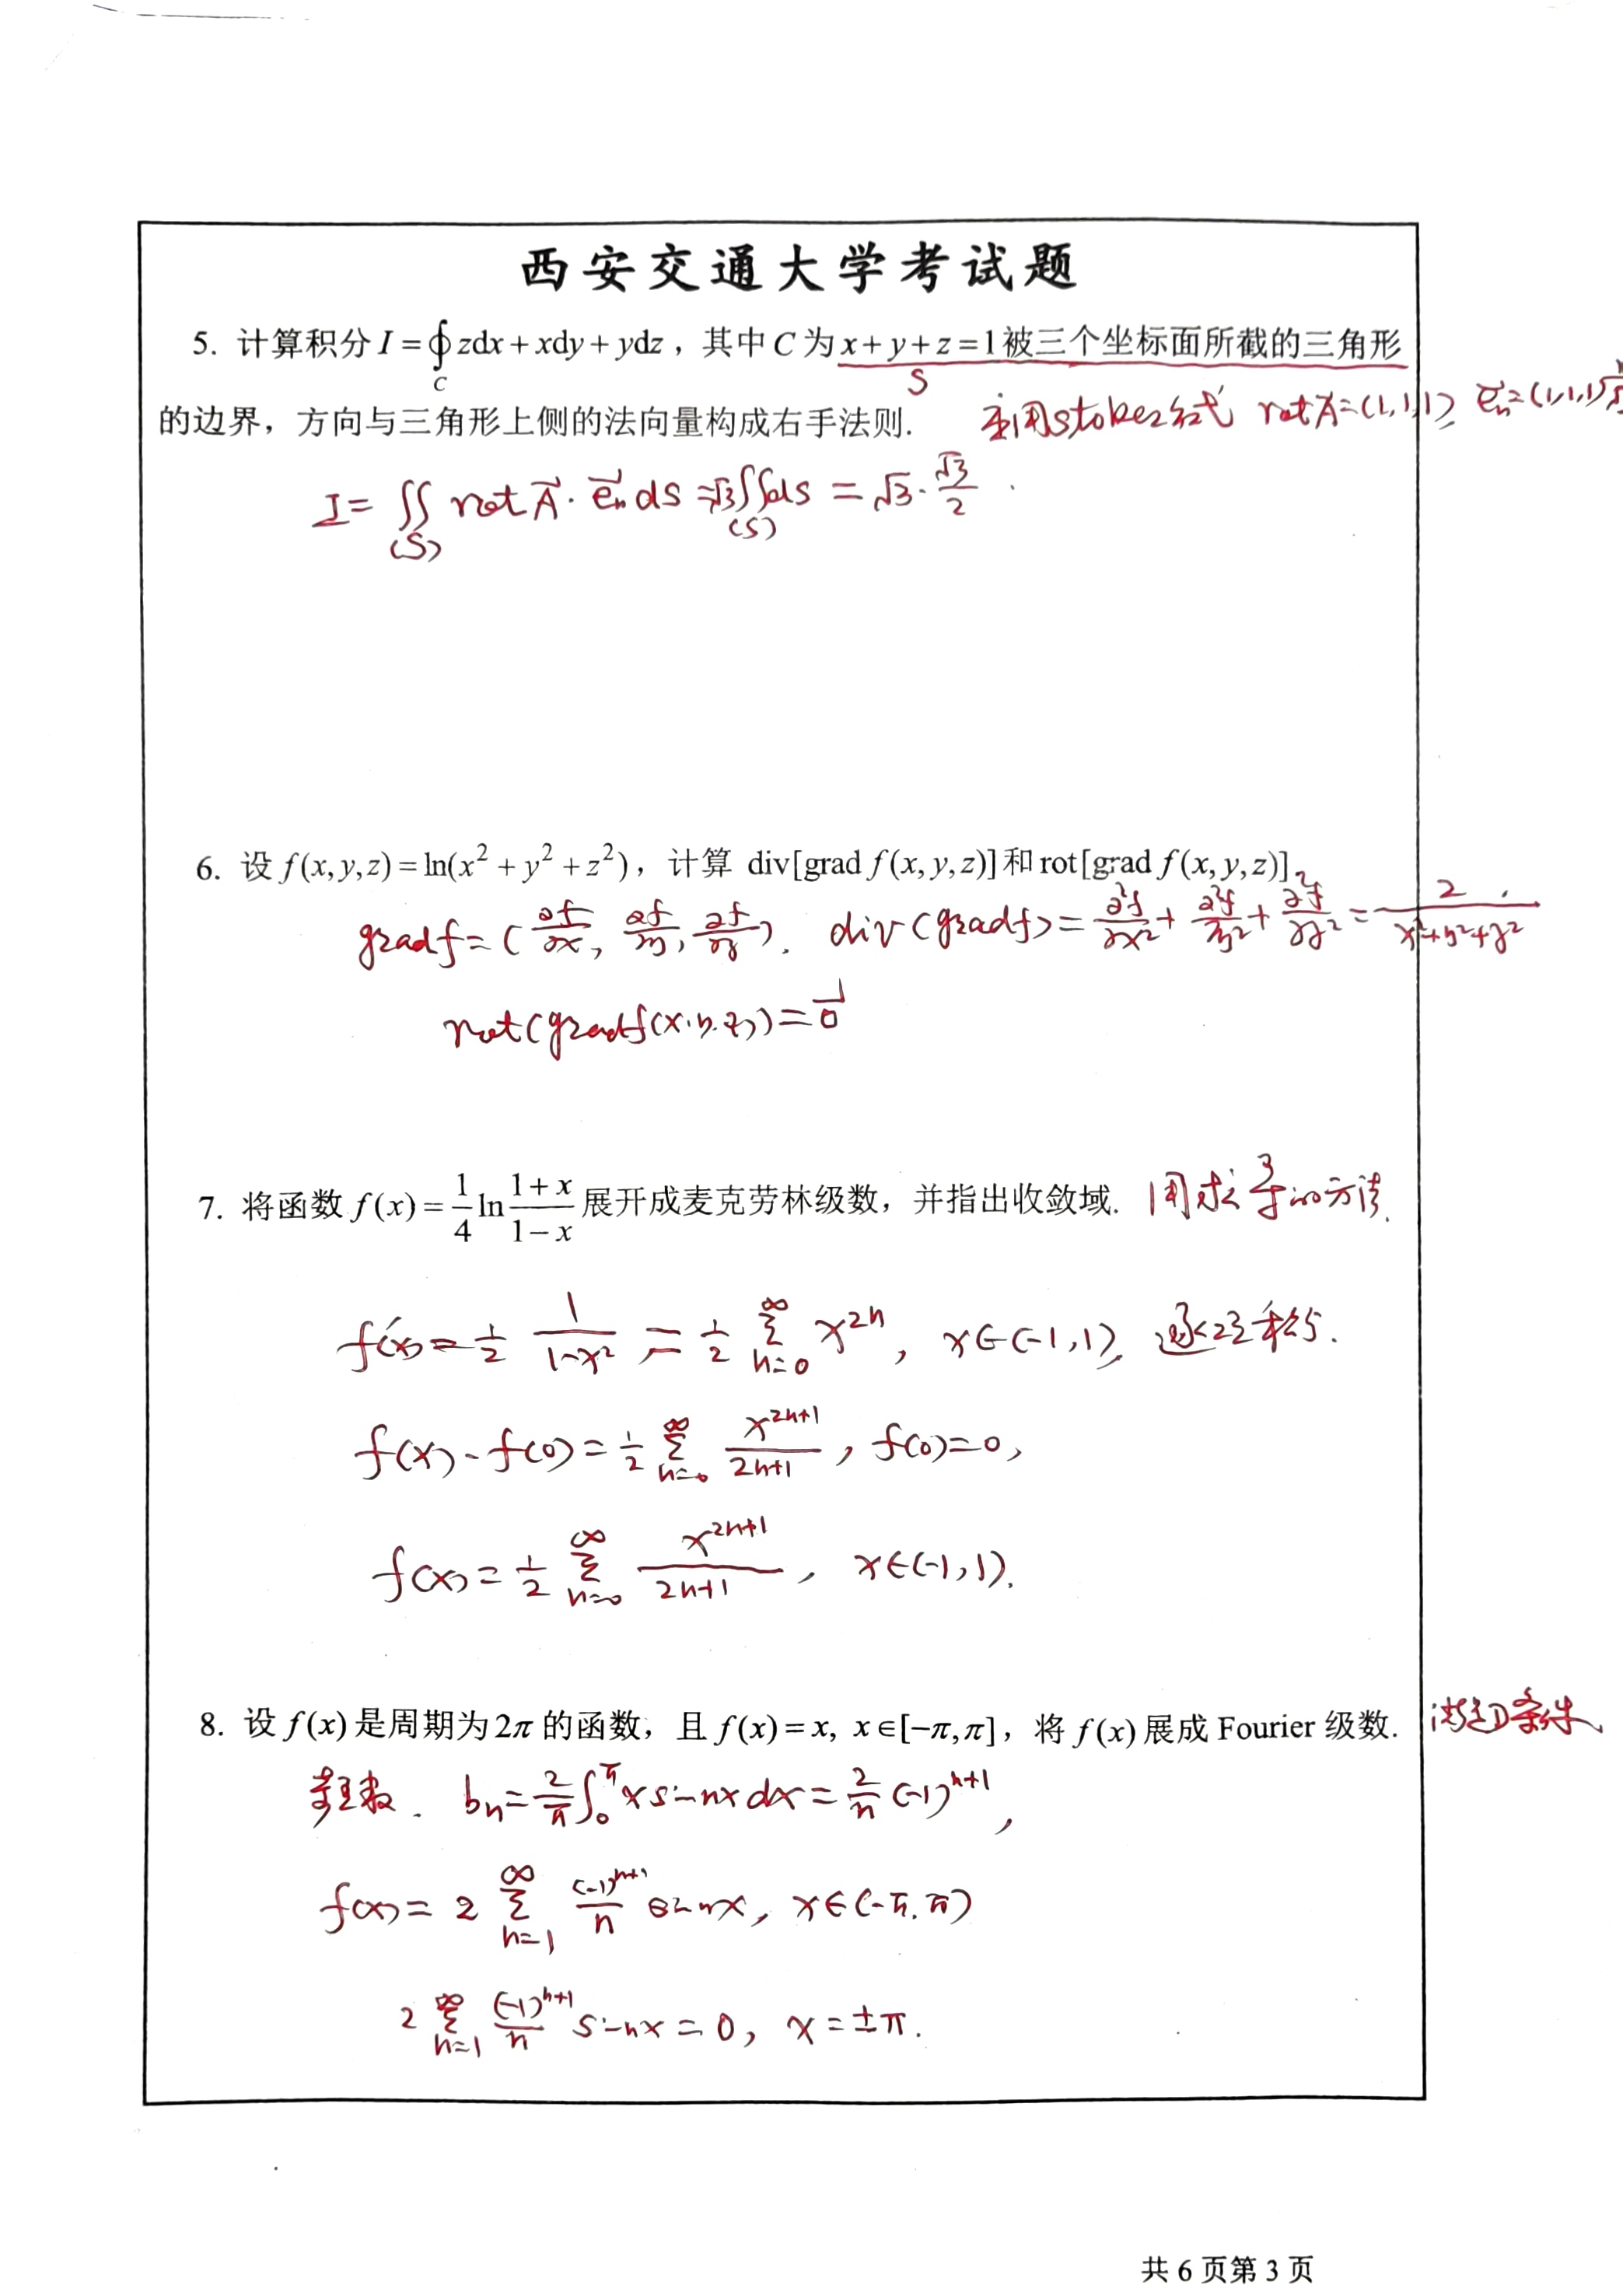 西安交通大学考试题
5. 计算积分 I = ∮_C zdx + xdy + ydz，其中 C 为 x + y + z = 1 被三个坐标面所截的三角形
S
的边界，方向与三角形上侧的法向量构成右手法则.
利用stokes公式 rot A⃗ = (1,1,1), e⃗n = (1,1,1)
I = ∬_(S) rot A⃗ · e⃗n ds = √3 ∬_(S) ds = √3 · √3/2 .
6. 设 f(x,y,z) = ln(x² + y² + z²)，计算 div[grad f(x,y,z)] 和 rot[grad f(x,y,z)].
gradf = (∂f/∂x, ∂f/∂y, ∂f/∂z). div(gradf) = ∂²f/∂x² + ∂²f/∂y² + ∂²f/∂z² = 2/(x²+y²+z²) .
rot(gradf(x.y.z)) = 0⃗
7. 将函数 f(x) = 1/4 ln (1+x)/(1−x) 展开成麦克劳林级数，并指出收敛域. 用求导的方法.
f'(x) = 1/2 1/(1−x²) = 1/2 ∑_{n=0}^{∞} x^{2n}, x∈(−1,1), 逐项积分.
f(x) − f(0) = 1/2 ∑_{n=0}^{∞} x^{2n+1}/(2n+1), f(0)=0,
f(x) = 1/2 ∑_{n=0}^{∞} x^{2n+1}/(2n+1), x∈(−1,1).
8. 设 f(x) 是周期为 2π 的函数，且 f(x) = x, x∈[−π,π]，将 f(x) 展成 Fourier 级数. 满足D条件
奇函数. bn = 2/π ∫_0^π x sin nx dx = 2/n (−1)^{n+1},
f(x) = 2 ∑_{n=1}^{∞} (−1)^{n+1}/n sin nx, x∈(−π.π)
2 ∑_{n=1}^{∞} (−1)^{n+1}/n sin nx = 0, x = ±π.
共 6 页第 3 页